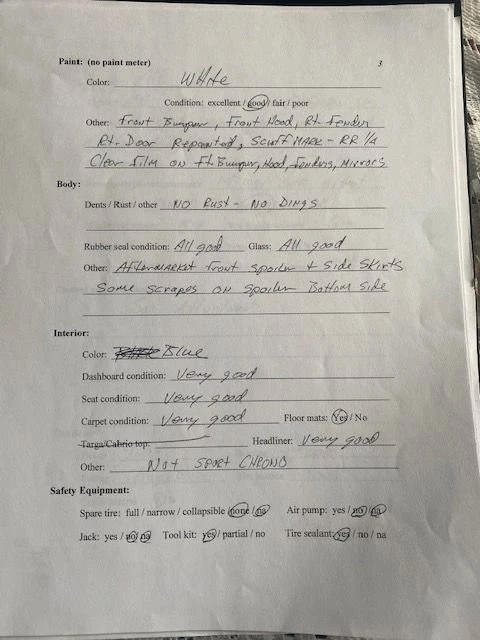 Paint: (no paint meter) 3
Color: White
Condition: excellent / good / fair / poor
Other: Front Bumper, Front Hood, Rt. Fender
Rt. Door Repainted, Scuff MARK - RR 1/4
Clear film on Ft. Bumper, Hood, Fenders, Mirrors
Body:
Dents / Rust / other NO Rust - NO DINGS
Rubber seal condition: All good Glass: All good
Other: Aftermarket front spoiler + Side Skirts
Some scrapes on spoiler Bottom side
Interior:
Color: Blue
Dashboard condition: Very good
Seat condition: Very good
Carpet condition: Very good Floor mats: Yes / No
Targa/Cabrio top: Headliner: Very good
Other: Not Sport CHRONO
Safety Equipment:
Spare tire: full / narrow / collapsible / none / na Air pump: yes / no / na
Jack: yes / no / na Tool kit: yes / partial / no Tire sealant: yes / no / na